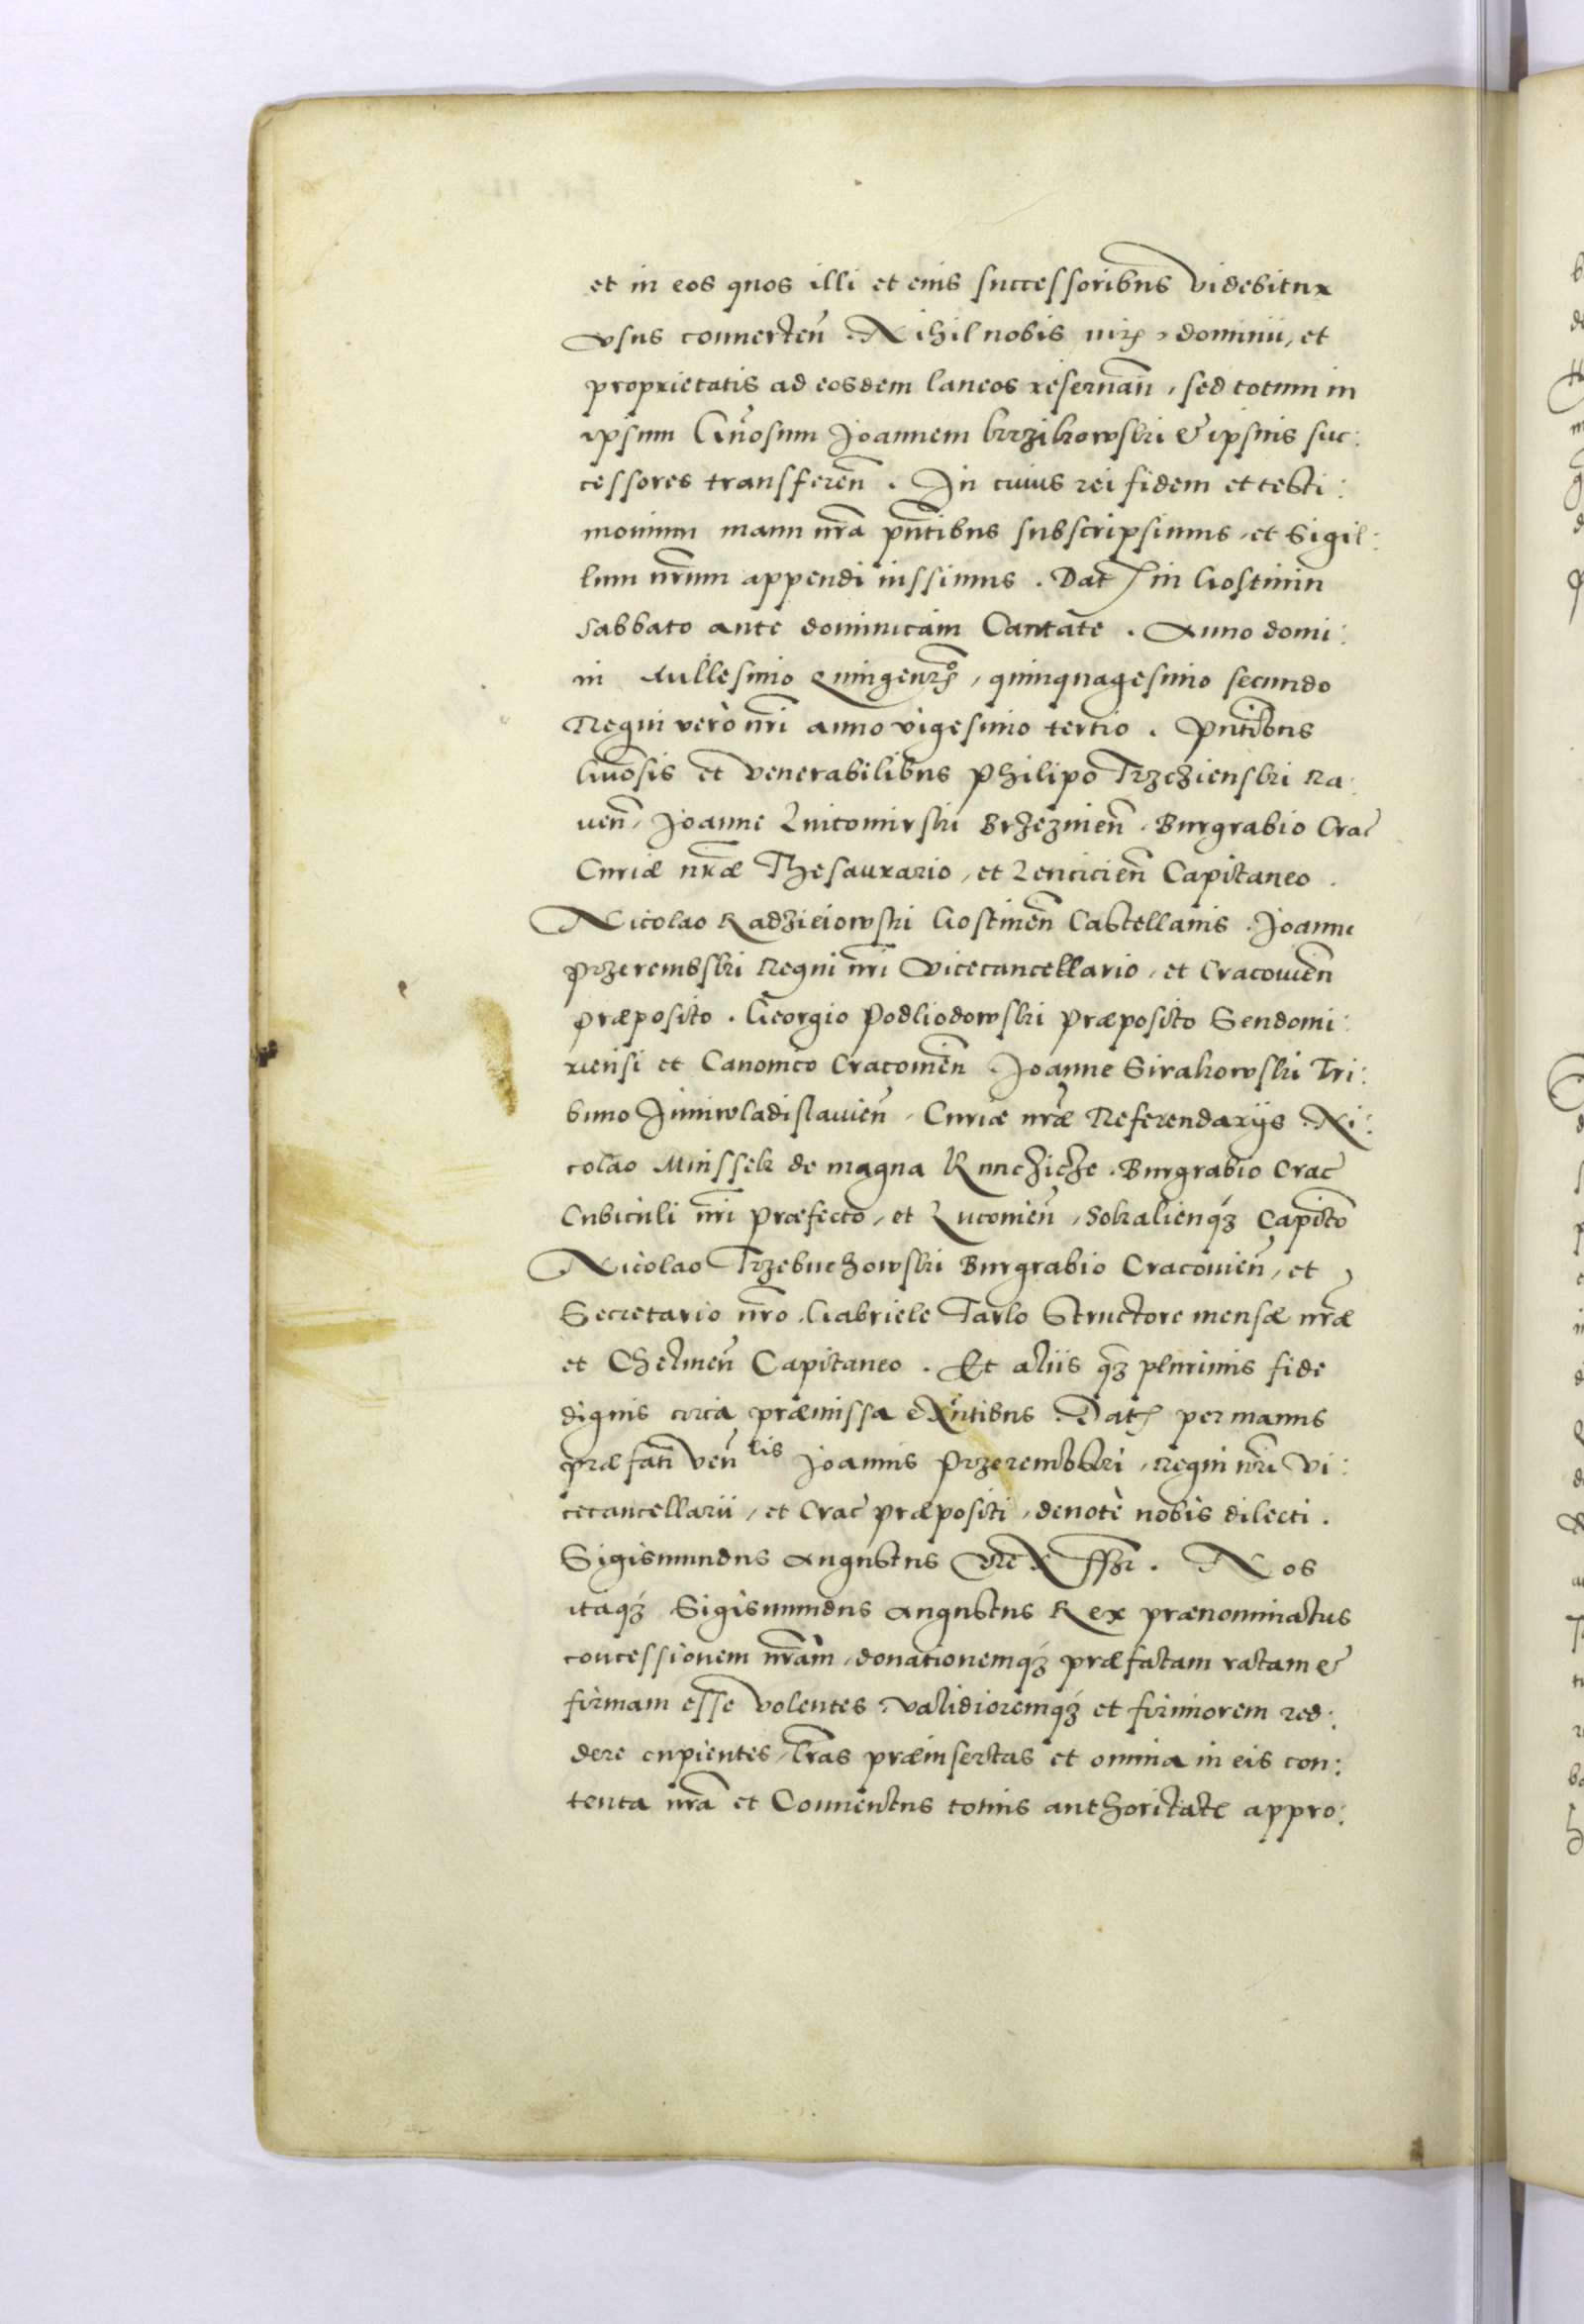 et in eos quos illi et eius successoribus videbitur
vsus conuerteñ. Nihil nobis iuris dominii, et
proprietatis ad eosdem laneos reseruañ, sed totum in
ipsum Gñosum Joannem krzikowski & ipsius suc:
cessores transfereñ. In cuius rei fidem et testi:
monium manu nrã pñtibus subscripsimus, et Sigil:
lum nrũm appendi iussimus. Dat in Gostinin
Sabbato ante dominicam Cantate. Anno domi:
ni Millesimo Quingenmo, quinquagesimo secundo
Regni verò nrĩ anno vigesimo tertio. Pñtibus
Gñosis et Venerabilibus Philipo Trzczienski Ra:
ueñ, Joanne Lutomirski Brzezinieñ. Burgrabio Crac
Curiæ nrǣ Thesaurario, et Lencicieñ Capitaneo.
Nicolao Radzieiowski Gostineñ Castellanis. Joanne
Przerembski Regni nrĩ Vicecancellario, et Cracouieñ
præposito. Georgio Podliodowski præposito Sendomi:
riensi et Canonico Cracouieñ. Joanne Sirakowski Tri:
buno Juniwladislauieñ, Curiæ nrǣ Referendariis. Ni:
colao Minssek de magna Kunczicze. Burgrabio Crac
Cubiculi nrĩ præfecto, et Lucorieñ, Sokalienq́ꝫ Capitõ
Nicolao Trzebuchowski Burgrabio Cracouieñ, et
Secretario nrõ. Gabriele Tarlo Structore mensæ nrǣ
et Chelmeñ Capitaneo. Et aliis qꝫ plurimis fide
dignis circa præmissa exñtibus. Dat per manus
præfati Veñlis Joannis Przerembski, Regni nrĩ Vi:
cecancellarii, et Crac præpositi, deuotè nobis dilecti.
Sigismundus Augustus Rex sst. Nos
itaq́ꝫ Sigismundus Augustus Rex prænominatus
concessionem nrãm, donationemq́ꝫ præfatam ratam &
firmam esse volentes, validioremq́ꝫ et firmiorem red:
dere cupientes, lrãs præinsertas et omnia in eis con:
tenta nrã et Conuentus totius authoritate appro: